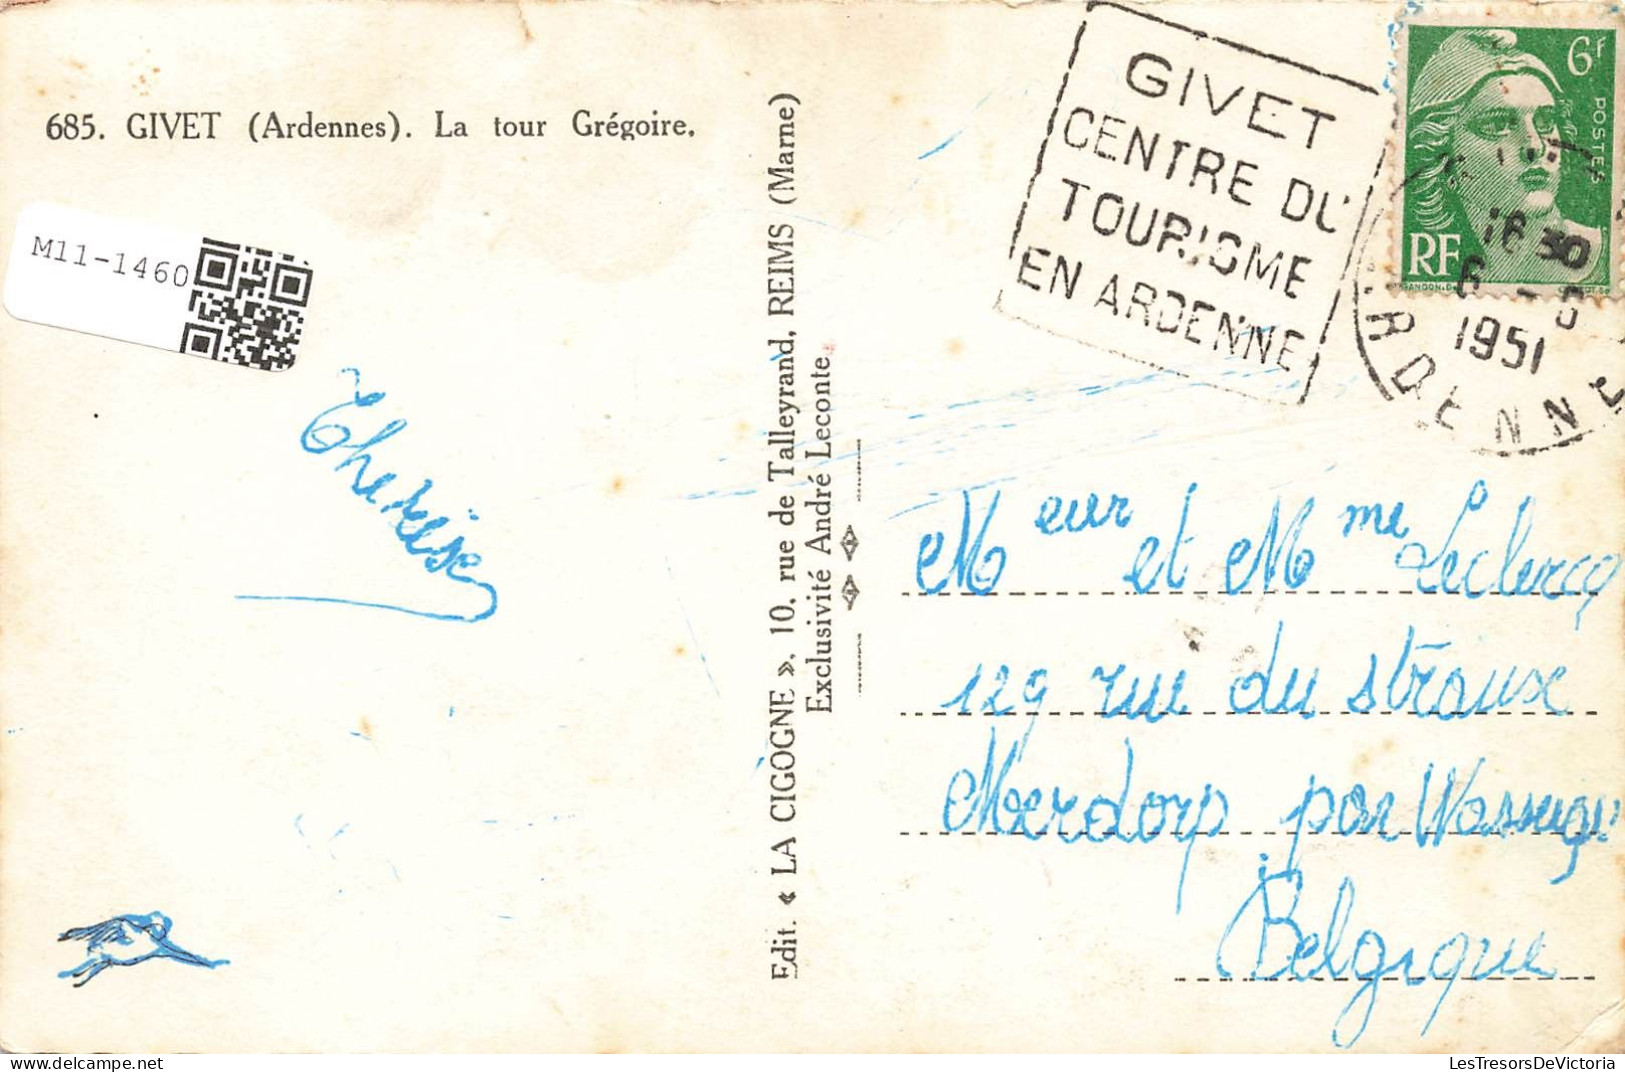 685. GIVET (Ardennes). La tour Grégoire.
M11-1460
Therèse
Edit. « LA CIGOGNE », 10, rue de Talleyrand, REIMS (Marne)
Exclusivité André Leconte
GIVET
CENTRE DU
TOURISME
EN ARDENNE
6F
POSTES
RF
16 30
6 -
1951
ARDENN
Meur et Mme Leclercq
129 rue du straux
Merdorp par
Belgique
LesTresorsDeVictoria